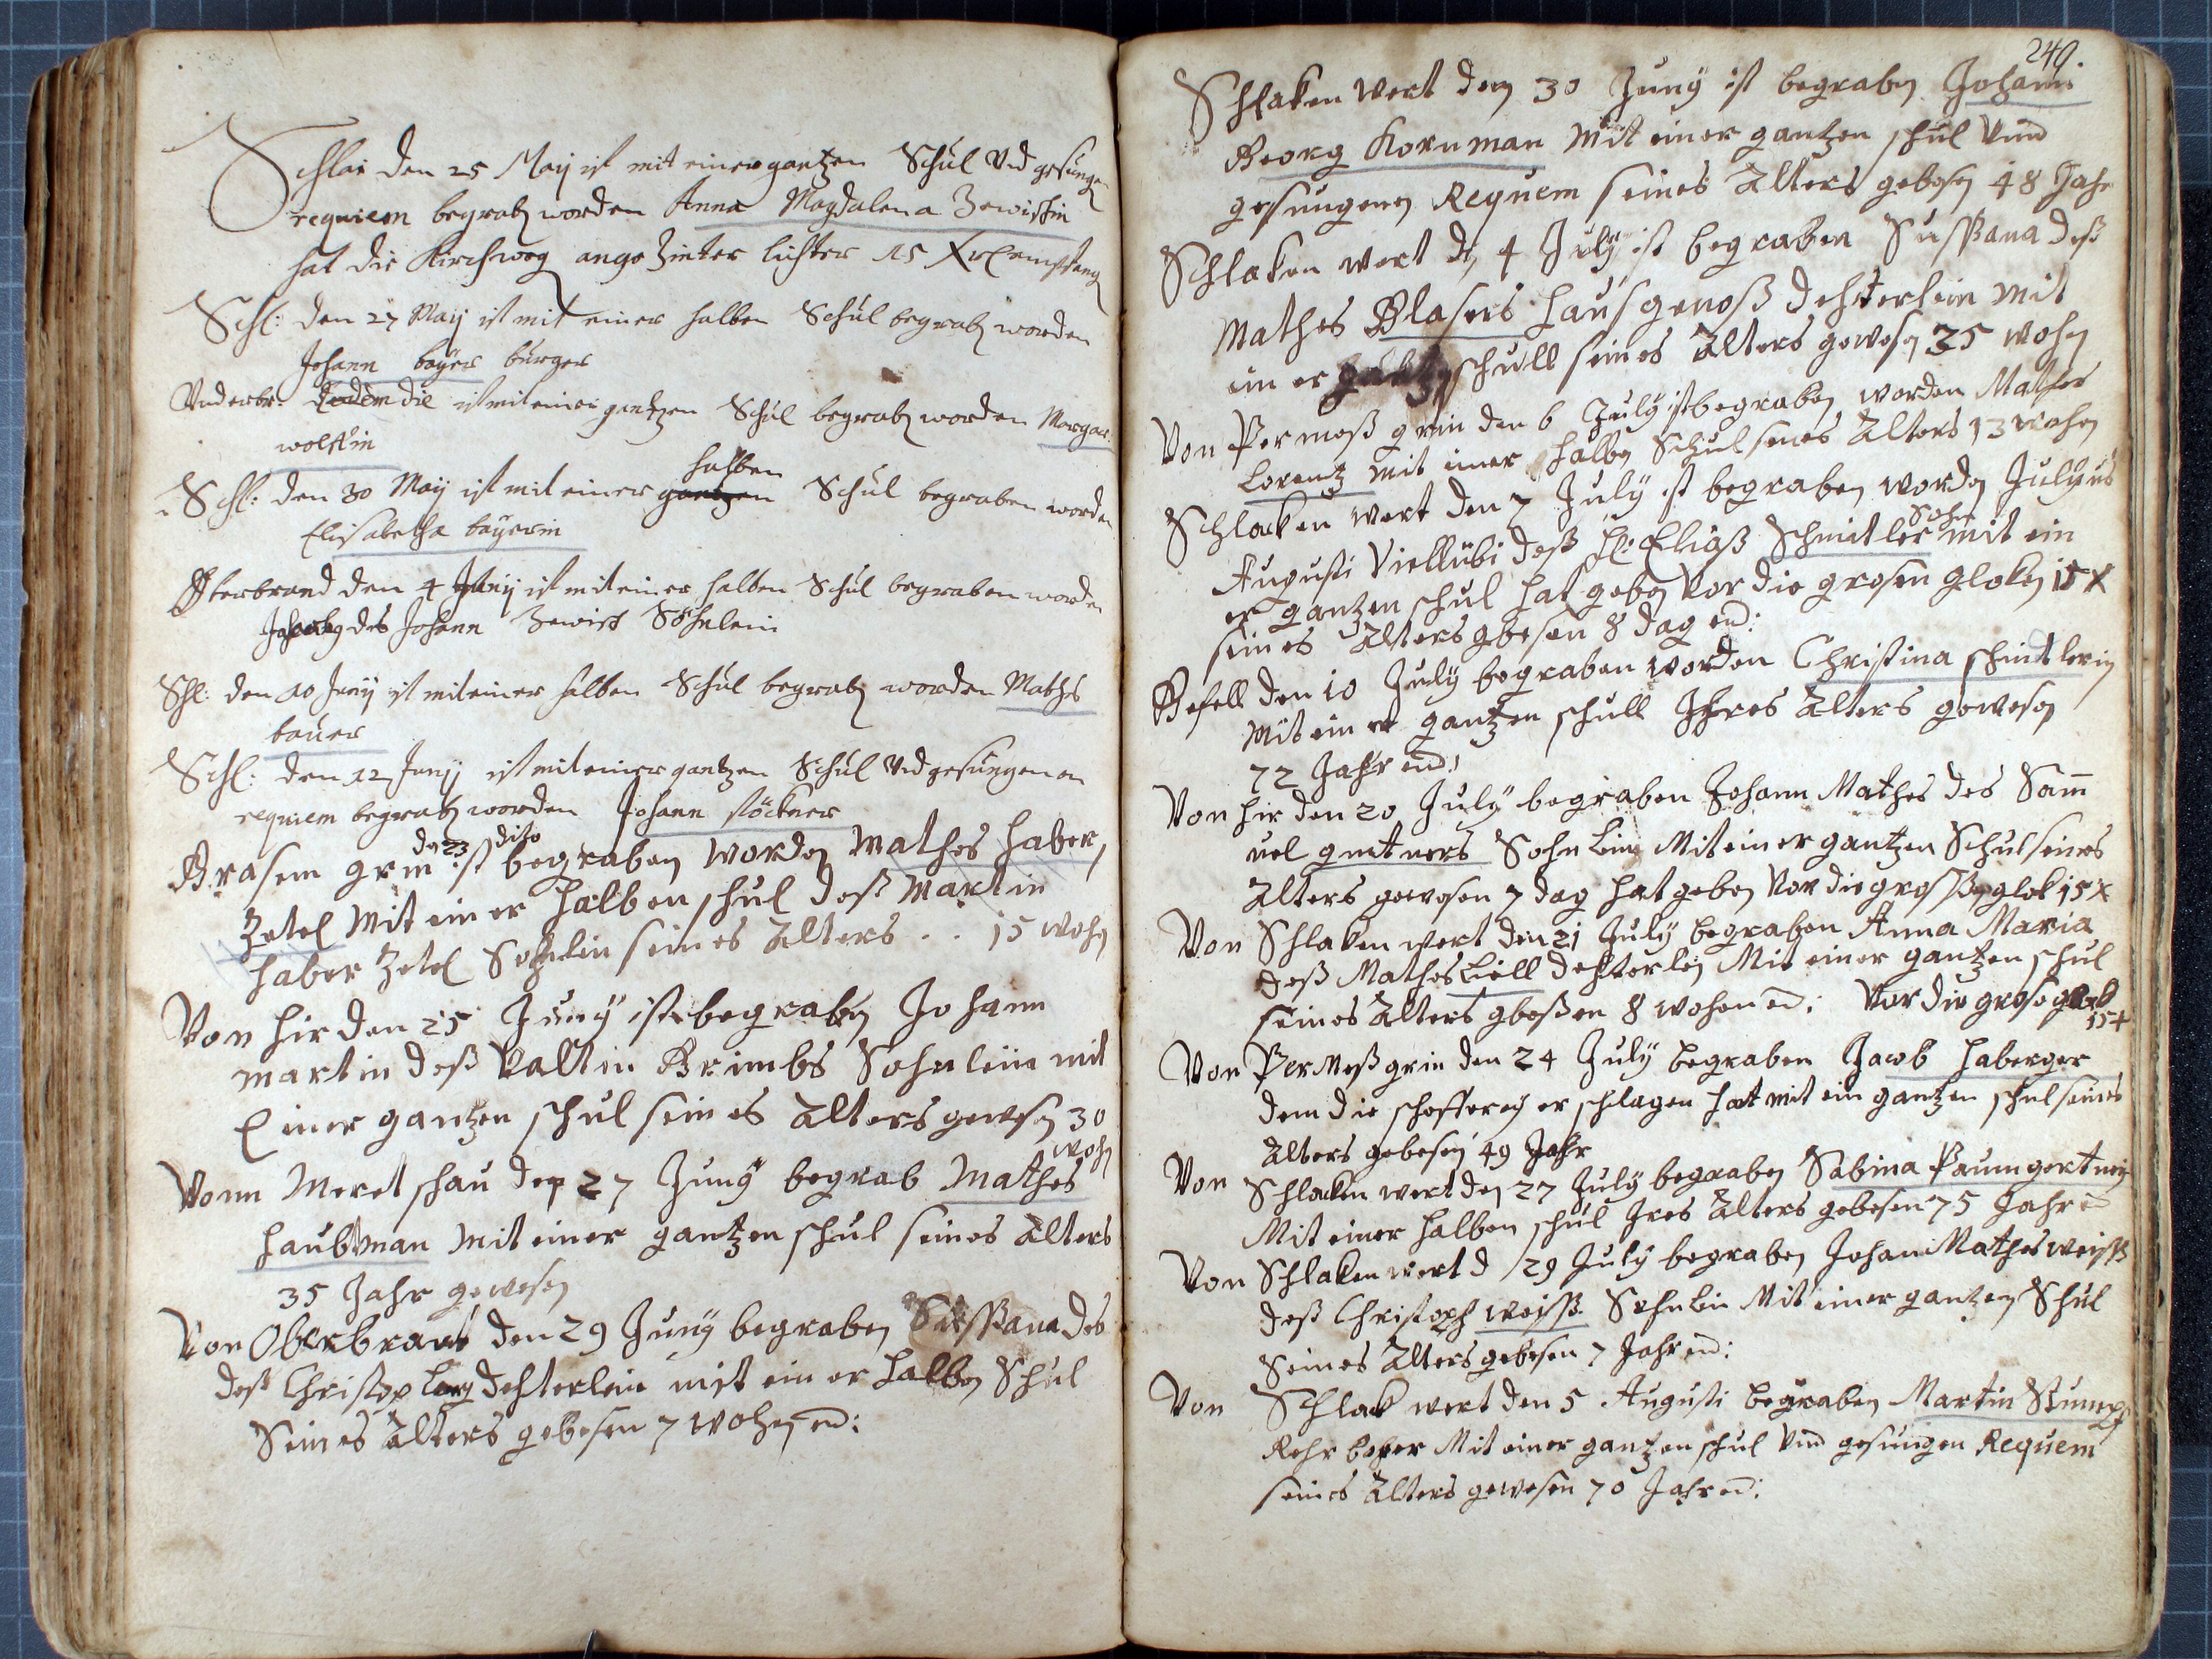 Schla: den 25 Maij ist mit einer gantzen Schul Und gesungen
requiem begrab worden Anna Magdalena Zewischin
hat die Kirchweg lichter 15 Xr
Schl: den 27 Maij ist mit einer halben Schul begrab worden
Johann bayer burger
Underbr: Eodem die ist mit einer gantzen Schul begrab worden Margar:
wolffin
halben
Schl: den 30 Maij ist mit einer gantzen Schul begraben worden
Elisabetha bayerin
den 4 Junij ist mit einer halben Schul begraben worden
des Johann Söhnlein
Schl: den 10 Junij ist mit einer halben Schul begrab worden Mathes
bauer
Schl: den 12 Junij ist mit einer gantzen Schul Und gesungenen
requiem begrab worden Johann stöckner
den 23 dito
Grasem grin ist begraben worden Mathes Haber
Zetel Mit einer halben schul deß Martin
haber Zetel Sohnlin seines alters . . 15 wohen
Von hir den 25 Juny ist begraben Johann
martin deß Valtin Brimbs Sohnlein mit
Einer gantzen schul seines alters gewesen 30
wohen
Vonn Meretschau den 27 Juny begrab Mathes
Haubtman Mit einer gantzen schul seines alters
35 Jahr gewesen
Von Oberbrant den 29 Juny begraben Sussana des
deß Christop dehterlein mit einer halben Schul
Seines alters gebesen 7 wohen end:
249.
Schlaken wert den 30 Juny ist begraben Johann
Georg Kornman Mit einer gantzen schul Und
gesungenen Requem seines alters gebesen 48 Jahr
Schlaken wert den 4 July ist begraben Sussana deß
Mathes Blasers hausgenoß dehterlein mit
einer gantzen schull seines alters gewesen 35 wohen
Von Permeß grin den 6 July ist begraben worden Mathes
Lorentz mit einer halben Schul seines alters 13 wohen
Schlacken wert den 7 July ist begraben worden Julyus
Sohn
Augusti deß H: Eliaß Schmitler mit ein
er gantzen schul hat geben Vor die grosen gloken 15 X
seines alters gbesen 8 dag end:
Gesell den 10 July begraben worden Christina schindtlerin
Mit einer gantzen schull Ihres alters gewesen
72 Jahr end:
Von hir den 20 July begraben Johann Mathes des Sam
uel gmtners Sohnlein Mit einer gantzen Schul seines
alters gewesen 7 dag hat geben Vor die grossen glok 15 X
Von Schlaken wert den 21 July begraben Anna Maria
deß Mathes Liell dehterlein Mit einer gantzen schul
seines alters gbeßen 8 wohen end: Vor die grose glok
15 +
Von Permeß grin den 24 July begraben Jacob Haberger
dem die erschlagen hat mit ein gantzen schul seines
alters gebesen 49 Jahr
Von Schlacken wert den 27 July begraben Sabina Paumgertnerin
Mit einer halben schul Ires alters gebesen 75 Jahr end
Von Schlaken wert d 29 July begraben Johan Mathes weiss
deß Christoph weiss Sohnlein Mit einer gantzen Schul
Seines alters gebesen 7 Jahr end:
Von Schlack wert den 5 Augusti begraben Martin Stumpf
Rohr boher Mit einer gantzen schul Und gesungen Requem
seines alters gewesen 70 Jahr end: